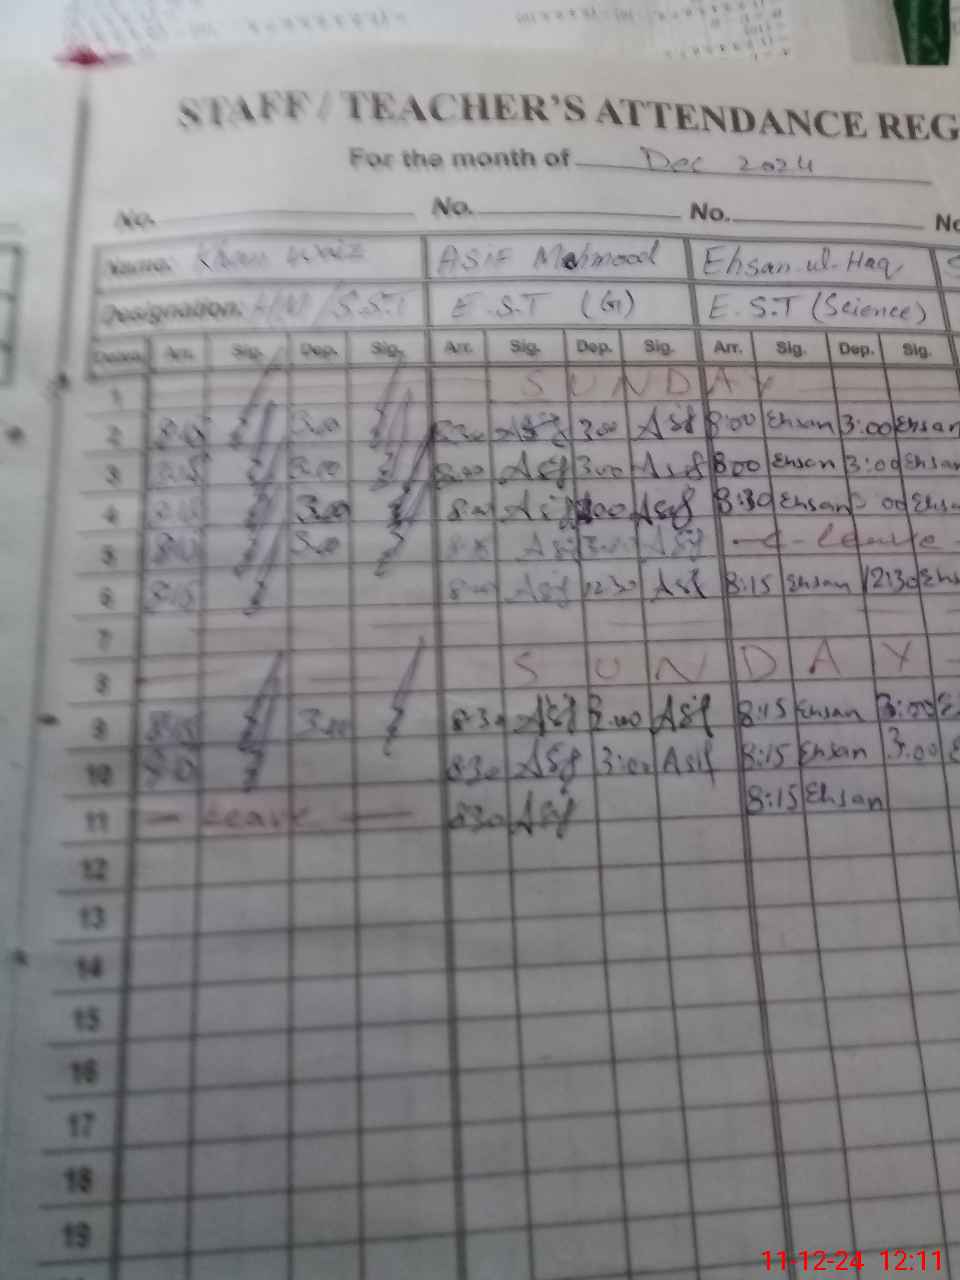 STAFF / TEACHER'S ATTENDANCE REG
For the month of Dec 2024
No. No. No. No
Name: Khan Asif Mehmood Ehsan-ul-Haq S
Designation: HM/S.S.T E.S.T (G) E.S.T (Science)
Dates Arr. Sig. Dep. Sig. Arr. Sig. Dep. Sig. Arr. Sig. Dep. Sig.
1 SUNDAY
2 3:00 8:30 Asif 3:00 Asif 8:00 Ehsan 3:00 Ehsan
3 3:00 8:00 Asif 3:00 Asif 8:00 Ehsan 3:00 Ehsan
4 3:00 8:00 Asif Asif 8:30 Ehsan :00 Ehsa
5 3:00 Asif Asif - c - leave -
6 8:15 Asif 12:30 Asif 8:15 Ehsan 12:30 Ehs
7
8 SUNDAY -
9 3:00 8:30 Asif 3:00 Asif 8:15 Ehsan 3:00 E
10 8:30 Asif 3:00 Asif 8:15 Ehsan 3:00 E
11 - Leave - 8:30 Asif 8:15 Ehsan
12
13
14
15
16
17
18
19
11-12-24 12:11